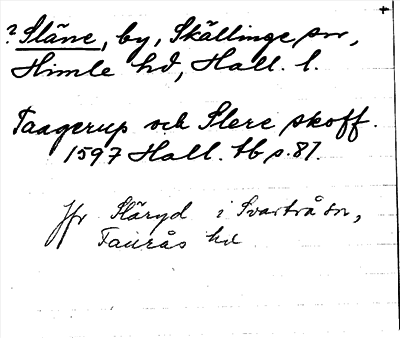 ? Släne, by, Skällinge sn,
Himle hd, Hall. l.
Taagerup och Slere skoff.
1597 Hall. tb s. 87.
Jfr Släryd i Svartrå sn,
Faurås hd